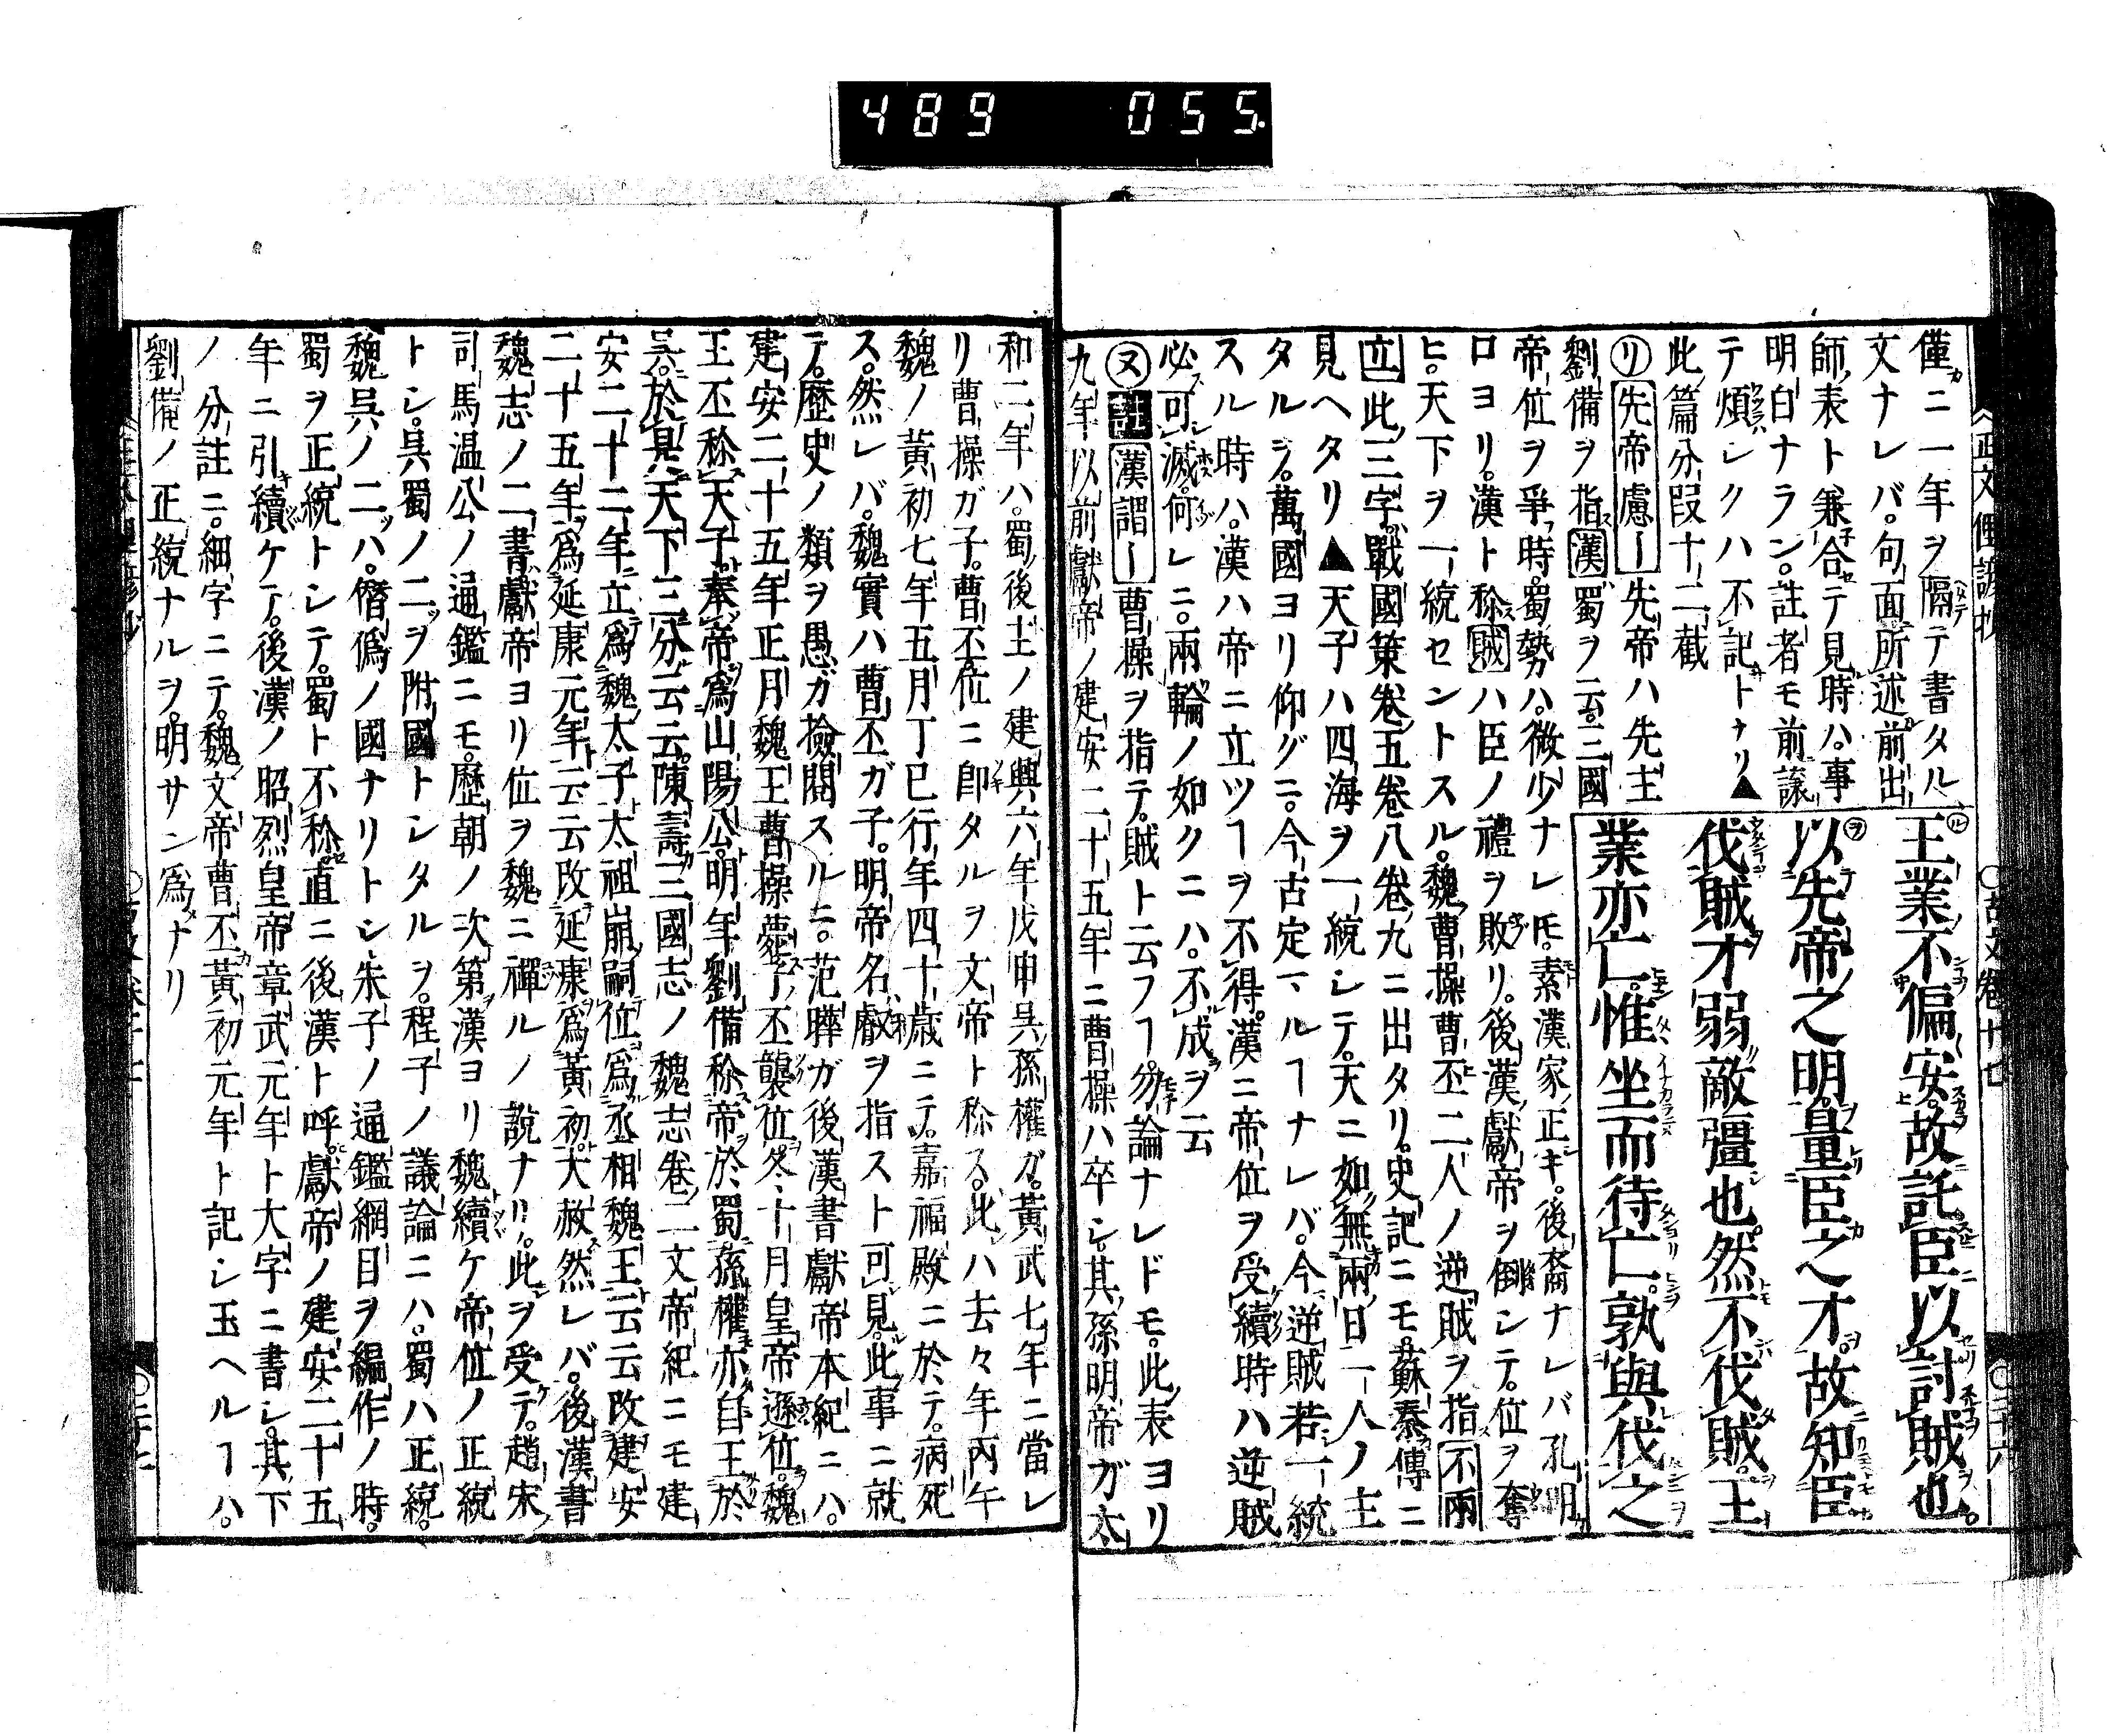 489 055.
僅ニ一年ヲ隔テ書タル
文ナレバ。句面所述前出
師表ト兼合テ見時ハ。事
明白ナラン。註者モ前議
テ煩シクハ不記トナリ▲
此篇分段十二截
㋷先帝慮ー先帝ハ先主
劉備ヲ指漢蜀ヲ云。三國
王業不偏安。故託臣以討賊也。
以先帝之明。量臣之才。故知臣
伐賊才弱敵彊也。然不伐賊。王
業亦亡。惟坐而待亡。孰與伐之
帝位ヲ爭時。蜀勢ハ。微少ナレ𪜈。素漢家正キ。後裔ナレバ孔明
ロヨリ。漢ト称賊ハ臣ノ禮ヲ敗リ。後漢獻帝ヲ倒シテ。位ヲ奪
ヒ。天下ヲ一統セントスル。魏曹操曹丕二人ノ逆賊ヲ指不兩
立此三字戰國策卷五卷八卷九ニ出タリ。史記ニモ。蘇秦傳ニ
見ヘタリ▲天子ハ四海ヲ一統シテ。天ニ如無兩日一人ノ主
タルヲ。萬國ヨリ仰グニ。今古定マルヿナレバ。今逆賊若一統
スル時ハ。漢ハ帝ニ立ツヿヲ不得。漢ニ帝位ヲ受續時ハ逆賊
必可滅。何レニ。兩輪ノ如クニハ。不成ヲ云
㋦註漢謂ー曹操ヲ指テ。賊ト云フヿ。勿論ナレドモ。此表ヨリ
九年以前獻帝ノ建安二十五年ニ曹操ハ卒シ。其孫明帝ガ太
和二年ハ。蜀後主ノ建興六年戊申呉孫權ガ。黃武七年ニ當レ
リ曹操ガ子。曹丕位ニ即タルヲ文帝ト称ス。此ハ去々年丙午
魏ノ黃初七年五月丁巳行年四十歳ニテ。嘉福殿ニ於テ。病死
ス。然レバ。魏實ハ曹丕ガ子。明帝名叡ヲ指スト可見。此事ニ就
テ。歷史ノ類ヲ愚ガ撿閲スルニ。范曄ガ後漢書獻帝本紀ニハ。
建安二十五年正月魏王曹操薨子丕襲位冬十月皇帝遜位。魏
王丕称天子。奉帝爲山陽公。明年劉備称帝於蜀孫權亦自王於
呉。於是天下三分云云。陳壽三國志ノ魏志卷二文帝紀ニモ建
安二十二年立爲魏太子太祖崩嗣位爲丞相魏王云云改建安
二十五年爲延康元年云云改延康爲黃初大赦然レバ。後漢書
魏志ノ二書獻帝ヨリ位ヲ魏ニ禪ルノ說ナリ。此ヲ受テ。趙宋
司馬温公ノ通鑑ニモ。歷朝ノ次第漢ヨリ魏續ケ帝位ノ正統
トシ。呉蜀ノ二ヲ附國トシタルヲ。程子ノ議論ニハ。蜀ハ正統。
魏呉ノ二ハ。僭僞ノ國ナリトシ朱子ノ通鑑綱目ヲ編作ノ時。
蜀ヲ正統トシテ。蜀ト不称。直ニ後漢ト呼。獻帝ノ建安二十五
年ニ引續ケテ。後漢ノ昭烈皇帝章武元年ト大字ニ書シ。其下
ノ分註ニ。細字ニテ。魏文帝曹丕黃初元年ト記シ玉ヘルヿハ。
劉備ノ正統ナルヲ。明サン爲ナリ